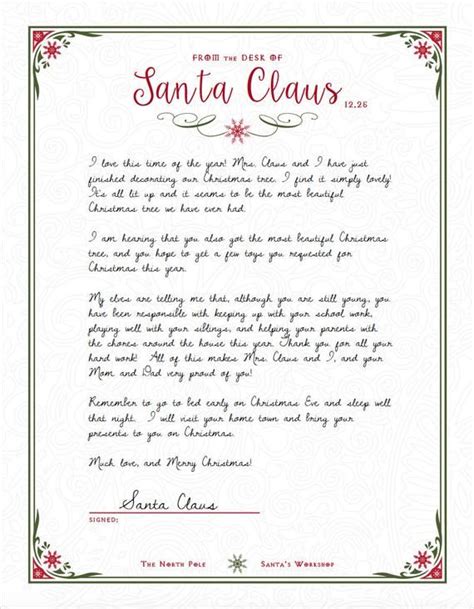 FROM THE DESK OF
Santa Claus
12.25
I love this time of the year! Mrs. Claus and I have just
finished decorating our Christmas tree. I find it simply lovely!
It's all lit up and it seams to be the most beautiful
Christmas tree we have ever had.
I am hearing that you also got the most beautiful Christmas
tree, and you hope to get a few toys you requested for
Christmas this year.
My elves are telling me that, although you are still young, you
have been responsible with keeping up with your school work,
playing well with your siblings, and helping your parents with
the chores around the house this year. Thank you for all your
hard work! All of this makes Mrs. Claus and I, and your
Mom and Dad very proud of you!
Remember to go to bed early on Christmas Eve and sleep well
that night. I will visit your home town and bring your
presents to you on Christmas.
Much love, and Merry Christmas!
Santa Claus
SIGNED:
THE NORTH POLE SANTA'S WORKSHOP